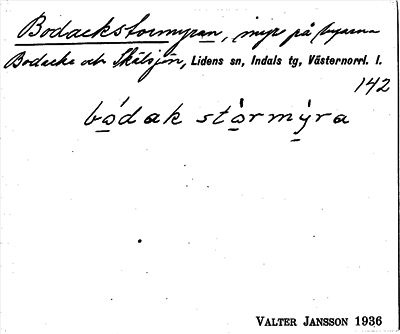 Bodackstormyran, myr på byarna
Bodacke och Skälsjön, Lidens sn, Indals tg, Västernorrl. l.
142
bódak stòrmýra
VALTER JANSSON 1936